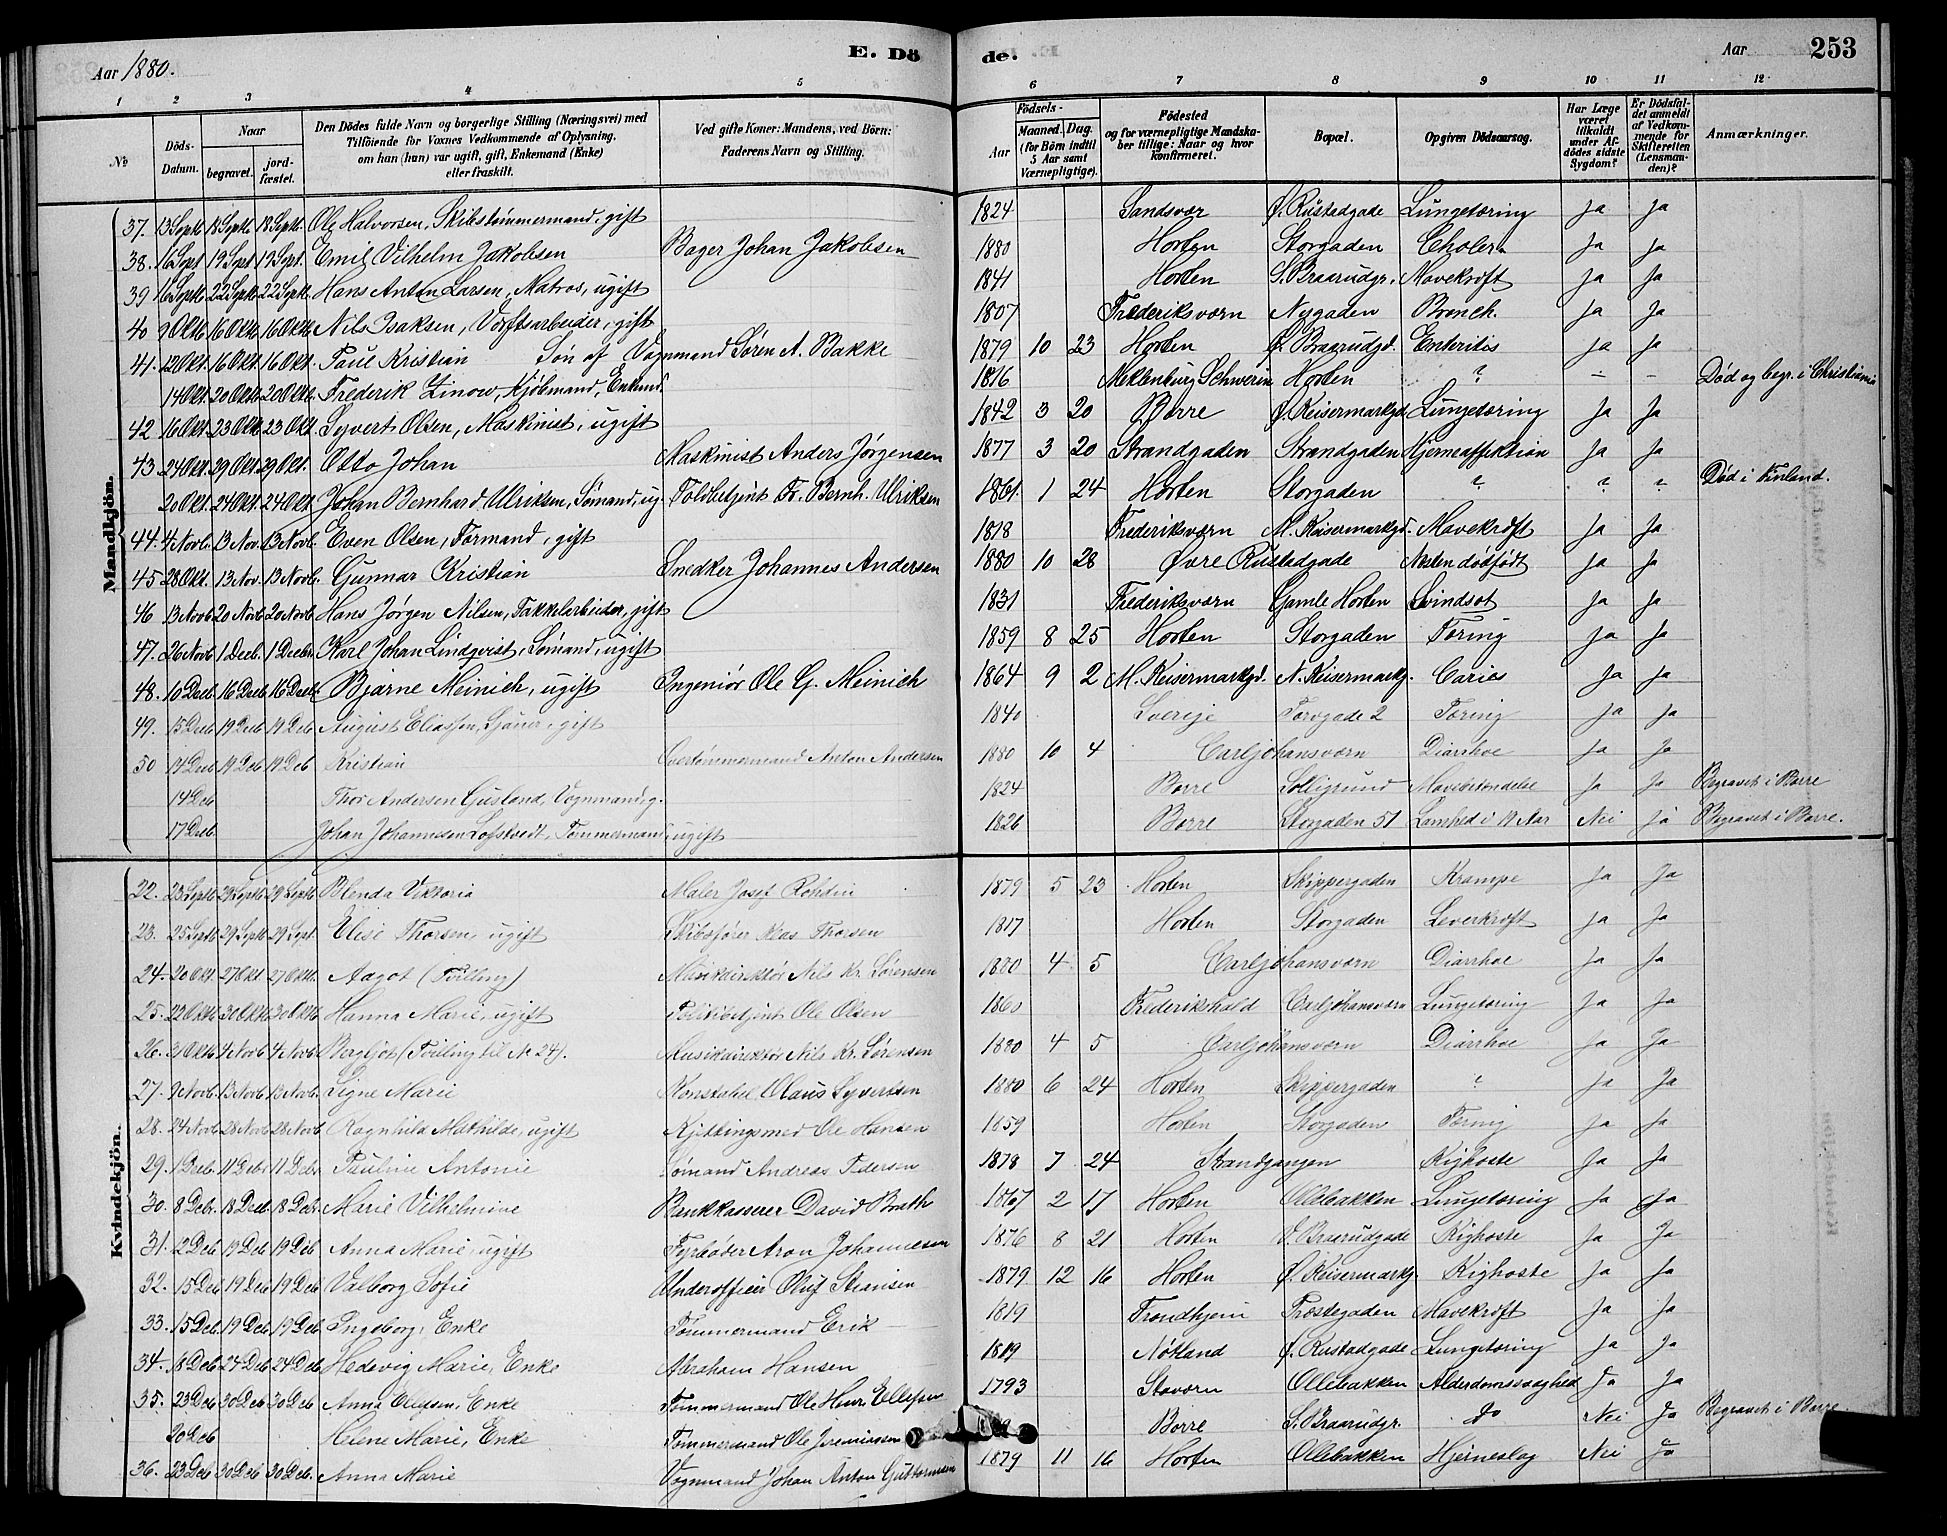 Aar 1880. E. Dö
de. Aar 253
1 2 3 4 5
6 7 8 9 10 11 12
No Döds-Datum. Naar begravet. jord-fæstet. Den Dödes fulde Navn og borgerlige Stilling (Næringsvei) med Tilföiende for Voxnes Vedkommende af Oplysning, om han (hun) var ugift, gift, Enkemand (Enke) eller fraskilt. Ved gifte Koner: Mandens, ved Börn: Faderens Navn og Stilling.
Födsels- Aar Maaned. Dag. (for Börn indtil 5 Aar samt Værnepligtige). Födested og for værnepligtige Mandska-ber tillige: Naar og hvor konfirmeret. Bopæl. Opgiven Dödsaarsag. Har Læge været tilkaldt under Af-dödes sidste Sygdom? Er Dödsfal-det anmeldt af Vedkom-mende for Skifteretten (Lensman-den)? Anmærkninger.
Mandkjön.
37. 13 Septb 18 Septb 18 Septb. Ole Halvorsen, Skibstømmermand, gift 1824 Sandsvær Ø. Rustadgade Lungetæring Ja Ja
38. 16 Sept 19 Sept 19 Sept. Emil Vilhelm Jakobsen Bager Johan Jakobsen 1880 Horten Storgaden Cholera Ja Ja
39 16 Septb 22 Septb 22 Septb. Hans Anton Larsen, Matros, ugift 1841 Horten S. Braarudgr. Mavekræft Ja Ja
40 9 Oktb 16 Oktb. 16 Oktb. Nils Isaksen, Værftsarbeider, gift 1807 Frederiksværn Nygaden Bronch. Ja Ja
41. 12 Okt. 16 Okt. 16 Okt. Paul Kristian Søn af Vognmand Søren A. Bakke 1879 10 23 Horten Ø. Braarudgd. Enteritis Ja Ja
14 Okt. 20 Okt. 20 Okt. Frederik Zinow, Kjøbmand, Enkmd. 1816 Meklenburg Schwerin Horten ? – – Død og begr. i Christiania
42 16 Okt. 23 Okt. 23 Okt. Syvert Olsen, Maskinist, ugift 1842 3 20 Borre Ø. Keisermarkgd. Lungetæring Ja Ja
43 24 Okt. 29 Okt. 29 Okt. Otto Johan Maskinist Anders Jørgensen 1877 3 20 Strandgaden Strandgaden Hjerneaffektion Ja Ja
20 Okt. 24 Okt. 24 Okt. Johan Bernhard Ulriksen, Sømand, ug. Toldbetjent Fr. Bernh. Ulriksen 1861. 1 24 Horten Storgaden ? ? ? Død i Finland.
44. 4 Novb. 13 Nov. 13 Novb. Even Olsen, Formand, gift 1818 Frederiksværn M. Keisermarkgd. Mavekræft Ja Ja
45 28 Okt. 13 Nov. 13 Novb. Gunnar Kristian Snedker Johannes Andersen 1880 10 28 Øvre Rustadgade Næsten dødfødt Ja Ja
46 13 Novb 20 Novb 20 Novb. Hans Jørgen Nilsen, Takkelarbeider, gift 1831 Frederiksværn Gamle Horten Svindsot Ja Ja
47. 26 Novb 1 Decb. 1 Decbr. Karl Johan Lindqvist, Sømand, ugift 1859 8 25 Horten Storgaden Tæring Ja Ja
48. 10 Decb. 16 Decb. 16 Decb. Bjarne Meinich, ugift Ingeniør Ole G. Meinich 1864 9 2 M. Keisermarkgd. N. Keisermarkg. Caries Ja Ja
49. 15 Decb 19 Decb 19 Deb August Eliassen, Sjauer, gift 1840 Sverige Torvgade 2 Tæring Ja Ja
50 14 Decb 19 Deb 19 Deb Kristian Overtømmermand Anton Andersen 1880 10 4 Carljohansværn Diarrhoe Ja Ja
14 Deb Thor Andersen Gusland, Vognmand, g. 1824 Borre Solligrund Mavebetændelse Ja Ja Begravet i Borre
17 Deb Johan Johannsen Lofstvedt, Tømmermand, ugift 1826 Borre Storgaden 51 Lamhed i 19 Aar Nei Ja Begravet i Borre.
Kvindekjön.
22. 23 Septb 29 Septb 29 Septb Blenda Viktoria Maler Josef Rohdin 1879 5 23 Horten Skippergaden Krampe Ja Ja
23. 25 Septb 29 Septb 29 Sept. Elise Thorsen, ugift Skibsfører Klas Thorsen 1817 Horten Storgaden Leverkræft Ja Ja
24. 20 Okt. 27 Okt 27 Oktb. Aagot (Tvilling) Musikdirektør Nils Kr. Sørensen 1880 4 5 Carljohansværn Diarrhoe Ja Ja
25. 22 Oktb 30 Oktb 30 Oktb Hanna Marie, ugift Politibetjent Ole Olsen 1860 Frederikshald Carljohansværn Lungetæring Ja Ja
26. 31 Oktb 4 Novb 4 Novb Bergljot (Tvilling til No 24). Musikdirektør Nils Kr. Sørensen 1880 4 5 Carljohansværn Diarrhoe Ja Ja
27. 9 Novb. 13 Novb 13 Novb. Signe Marie Konstabel Olaus Syvertsen 1880 6 24 Horten Skippergaden ? Ja Ja
28. 24 Novb 28 Novb 28 Novb Ragnhild Mathilde, ugift Hansen 1859 Horten Storgaden Tæring Ja Ja
29. 1 Decb. 11 Debr 11 Debr Pauline Antonie Sømand Andreas Pedersen 1878 7 24 Strandgangen Kighoste Ja Ja
30. 8 Deb. 18 Decb. 18 Deb. Marie Vilhelmine Bankkasserer David Brath 1867 2 17 Horten Ollebakken Lungetæring Ja Ja
31. 12 Deb 19 Deb 19 Deb Anna Marie, ugift Fyrbøder Aron Johannesen 1876 8 21 Horten V. Braarudgade Kighoste Ja Ja
32. 15 Deb 19 Deb 19 Deb Valborg Sofie Underofficer Oluf Stiansen 1879 12 16 Horten Ø. Keisermarkg. Kighoste Ja Ja
33. 15 Deb. 19 Deb 19 Deb Ingeborg, Enke Tømmermand Erik 1819 Trondhjem Præstegaden Mavekræft Ja Ja
34. 18 Deb 24 Deb 24 Deb Hedevig Marie, Enke Abraham Hansen 1819 Nøtland Ø. Rustadgade Lungetæring Ja Ja
35. 23 Deb 30 Deb 30 Deb Anna Olafsen, Enke Tømmermand Ole Henr. Ellefsen 1793 Stavern Ollebakken Alderdomssvaghed Ja Ja
20 Deb Helene Marie, Enke Tømmermand Ole Jeremiassen Borre S. Braarudgr. Do Nei Ja Begravet i Borre.
36. 23 Deb 30 Deb 30 Deb. Anna Marie Vognmand Johan Anton Guttormsen 1879 11 16 Horten Ollebakken Hjerneslag Nei Ja